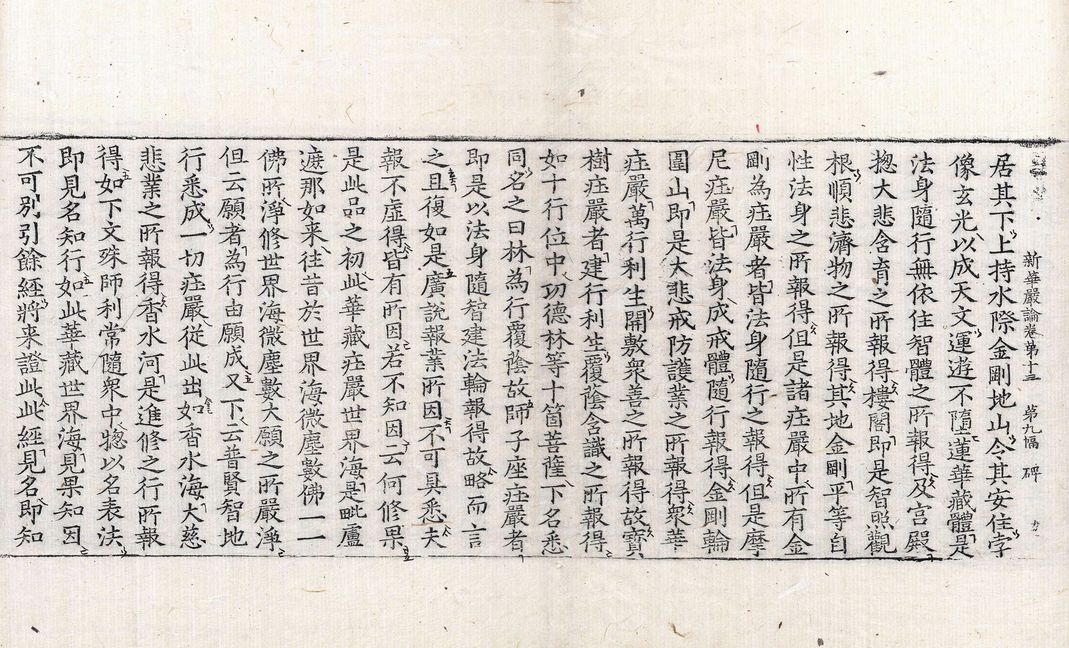 新華嚴論卷第十三 第九幅 碑
居其下上持水際金剛地山令其安住㝵
像玄光以成天文運遊不隨蓮華藏體是
法身隨行無依住智體之所報得及宮殿
揔大悲含育之所報得樓閣即是智照觀
根順悲濟物之所報得其地金剛平等自
性法身之所報得但是諸庄嚴中所有金
剛為庄嚴者皆法身隨行之報得但是摩
尼庄嚴皆法身成戒體隨行報得金剛輪
圍山即是大悲戒防護業之所報得衆華
庄嚴萬行利生開敷衆善之所報得故寶
樹庄嚴者建行利生覆蔭含識之所報得
如十行位中功德林等十箇菩薩下名悉
同名之曰林為行覆陰故師子座庄嚴者
即是以法身隨智建法輪報得故略而言
之且復如是廣說報業所因不可具悉夫
報不虛得皆有所因若不知因云何修果
是此品之初此華藏庄嚴世界海是毗盧
遮那如来往昔於世界海微塵數佛一一
佛所淨修世界海微塵數大願之所嚴淨
但云願者為行由願成又下云普賢智地
行悉成一切庄嚴從此出如香水海大慈
悲業之所報得香水河是進修之行所報
得如下文殊師利常隨衆中揔以名表法
即見名知行如此華藏世界海見果知因
不可別引餘經將来證此此經見名即知